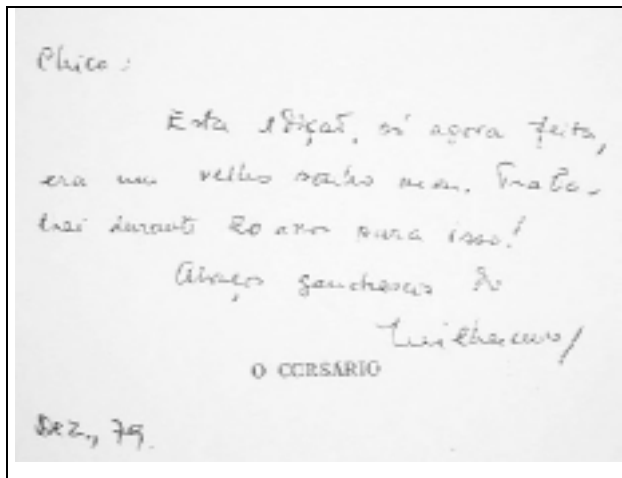 Chico:
Esta edição, só agora feita,
era um velho sonho meu. Traba-
lhei durante 20 anos para isso!
Abraços gauchescos do
Guilhermino
O CORSÁRIO
Dez., 79.